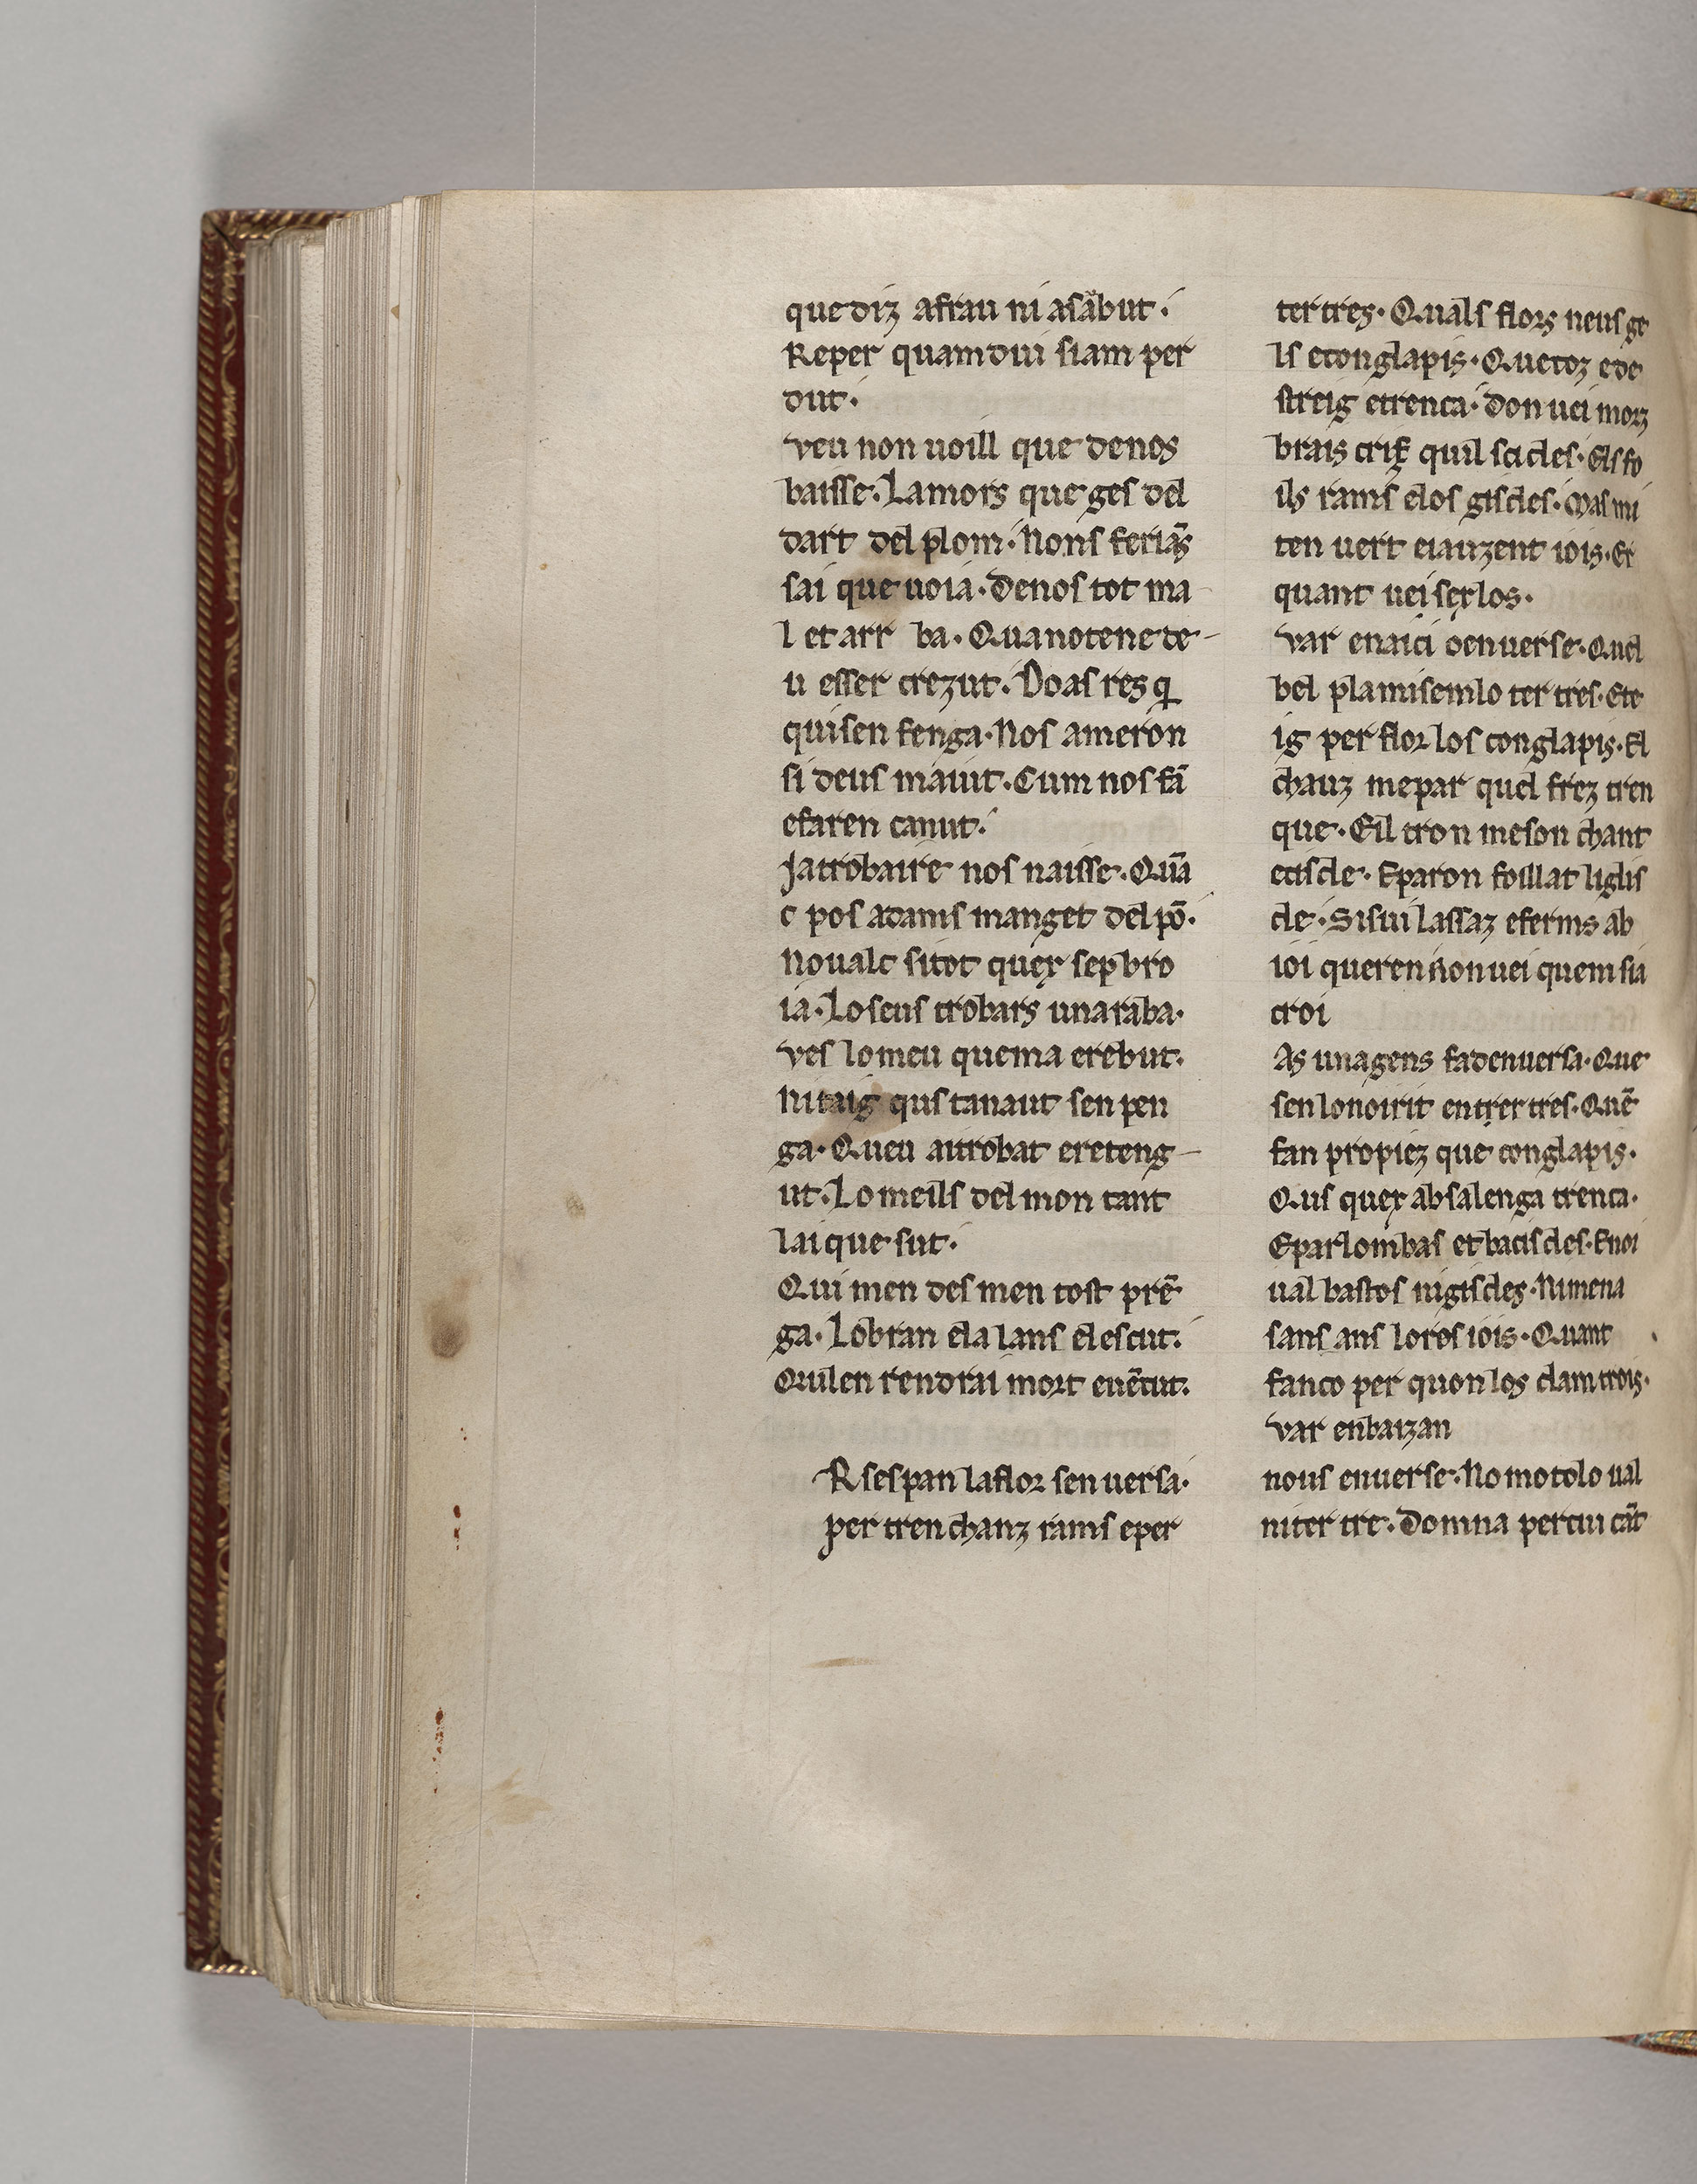 que diz afrau ni asābut.
Reper quamdui siam per
dut.
veu non uoill que denos
baisse. Lamors que ges del
dart del plom. Nons feriās
sai que uoia. Denos tot ma
l et arr ba. Qua notene de-
u esser crezut. Doas res q
qui sen fenga. Nos ameron
si deus maiut. Cum nos fā
efaren canut.
Ja trobaire nos naisse. Quā
c pos adams manget del pō.
Noualc sitot quex sep bro
ia. Loseus trobars una raba.
ves lo meu quema erebut.
Ni taig qus tanaut sen pen
ga. Queu ai trobat ereteng-
ut. Lo meils del mon tant
lai que fut.
Qui men des men tost prē
ga. Lo bran ela lans el escut.
Quilen rendrai mort euēcut.
R sespan la flor sen uersa.
per tren chanz rams eper
ter tres. Quals flors neus ge
ls e conglapis. Que coz e de
streig e trenca. Don uei morz
brais criz quil scicles. Els fo
ils rams elos giscles. Mas mi
ten uert e iauzent iois. Er
quant uei serlos.
var enaici o enuerse. Quel
bel pla mi semlo ter tres. E te
ig per flor los conglapis. El
chauz me par quel frez tren
que. Eil tron me son chant
e cis cle. E paron foillat li glis
cle. Si sui lassaz e ferms ab
ioi queren non uei quem sia
croi
As una gens fad enuersa. Que
sen lo noirit en trer tres. Quē
fan propiez que conglapis.
Qus quex ab sa lenga trenca.
E par lom bas et bacis cles. E noi
ual bastos ni giscles. Ni mena
sans ans lor es iois. Quant
fan co per quon los clam crois.
var en baizan
nous enuerse. No mo tolo ual
ni ter tre. Domna per cui cāt